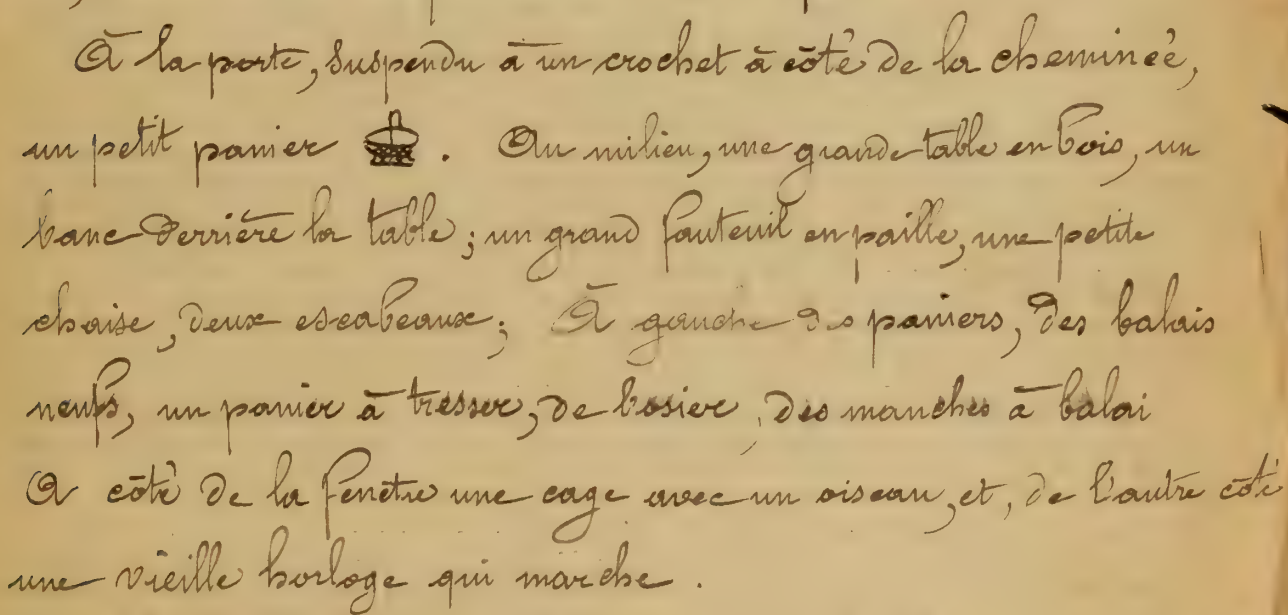 À la porte, suspendu à un crochet à côté de la cheminée,
un petit panier . Au milieu, une grande table en bois, un
banc derrière la table ; un grand fauteuil en paille, une petite
chaise, deux escabeaux ; À gauche des paniers, des balais
neufs, un panier à tresser, de l'osier, des manches à balai
A côté de la fenêtre une cage avec un oiseau, et, de l'autre côté
une vieille horloge qui marche .